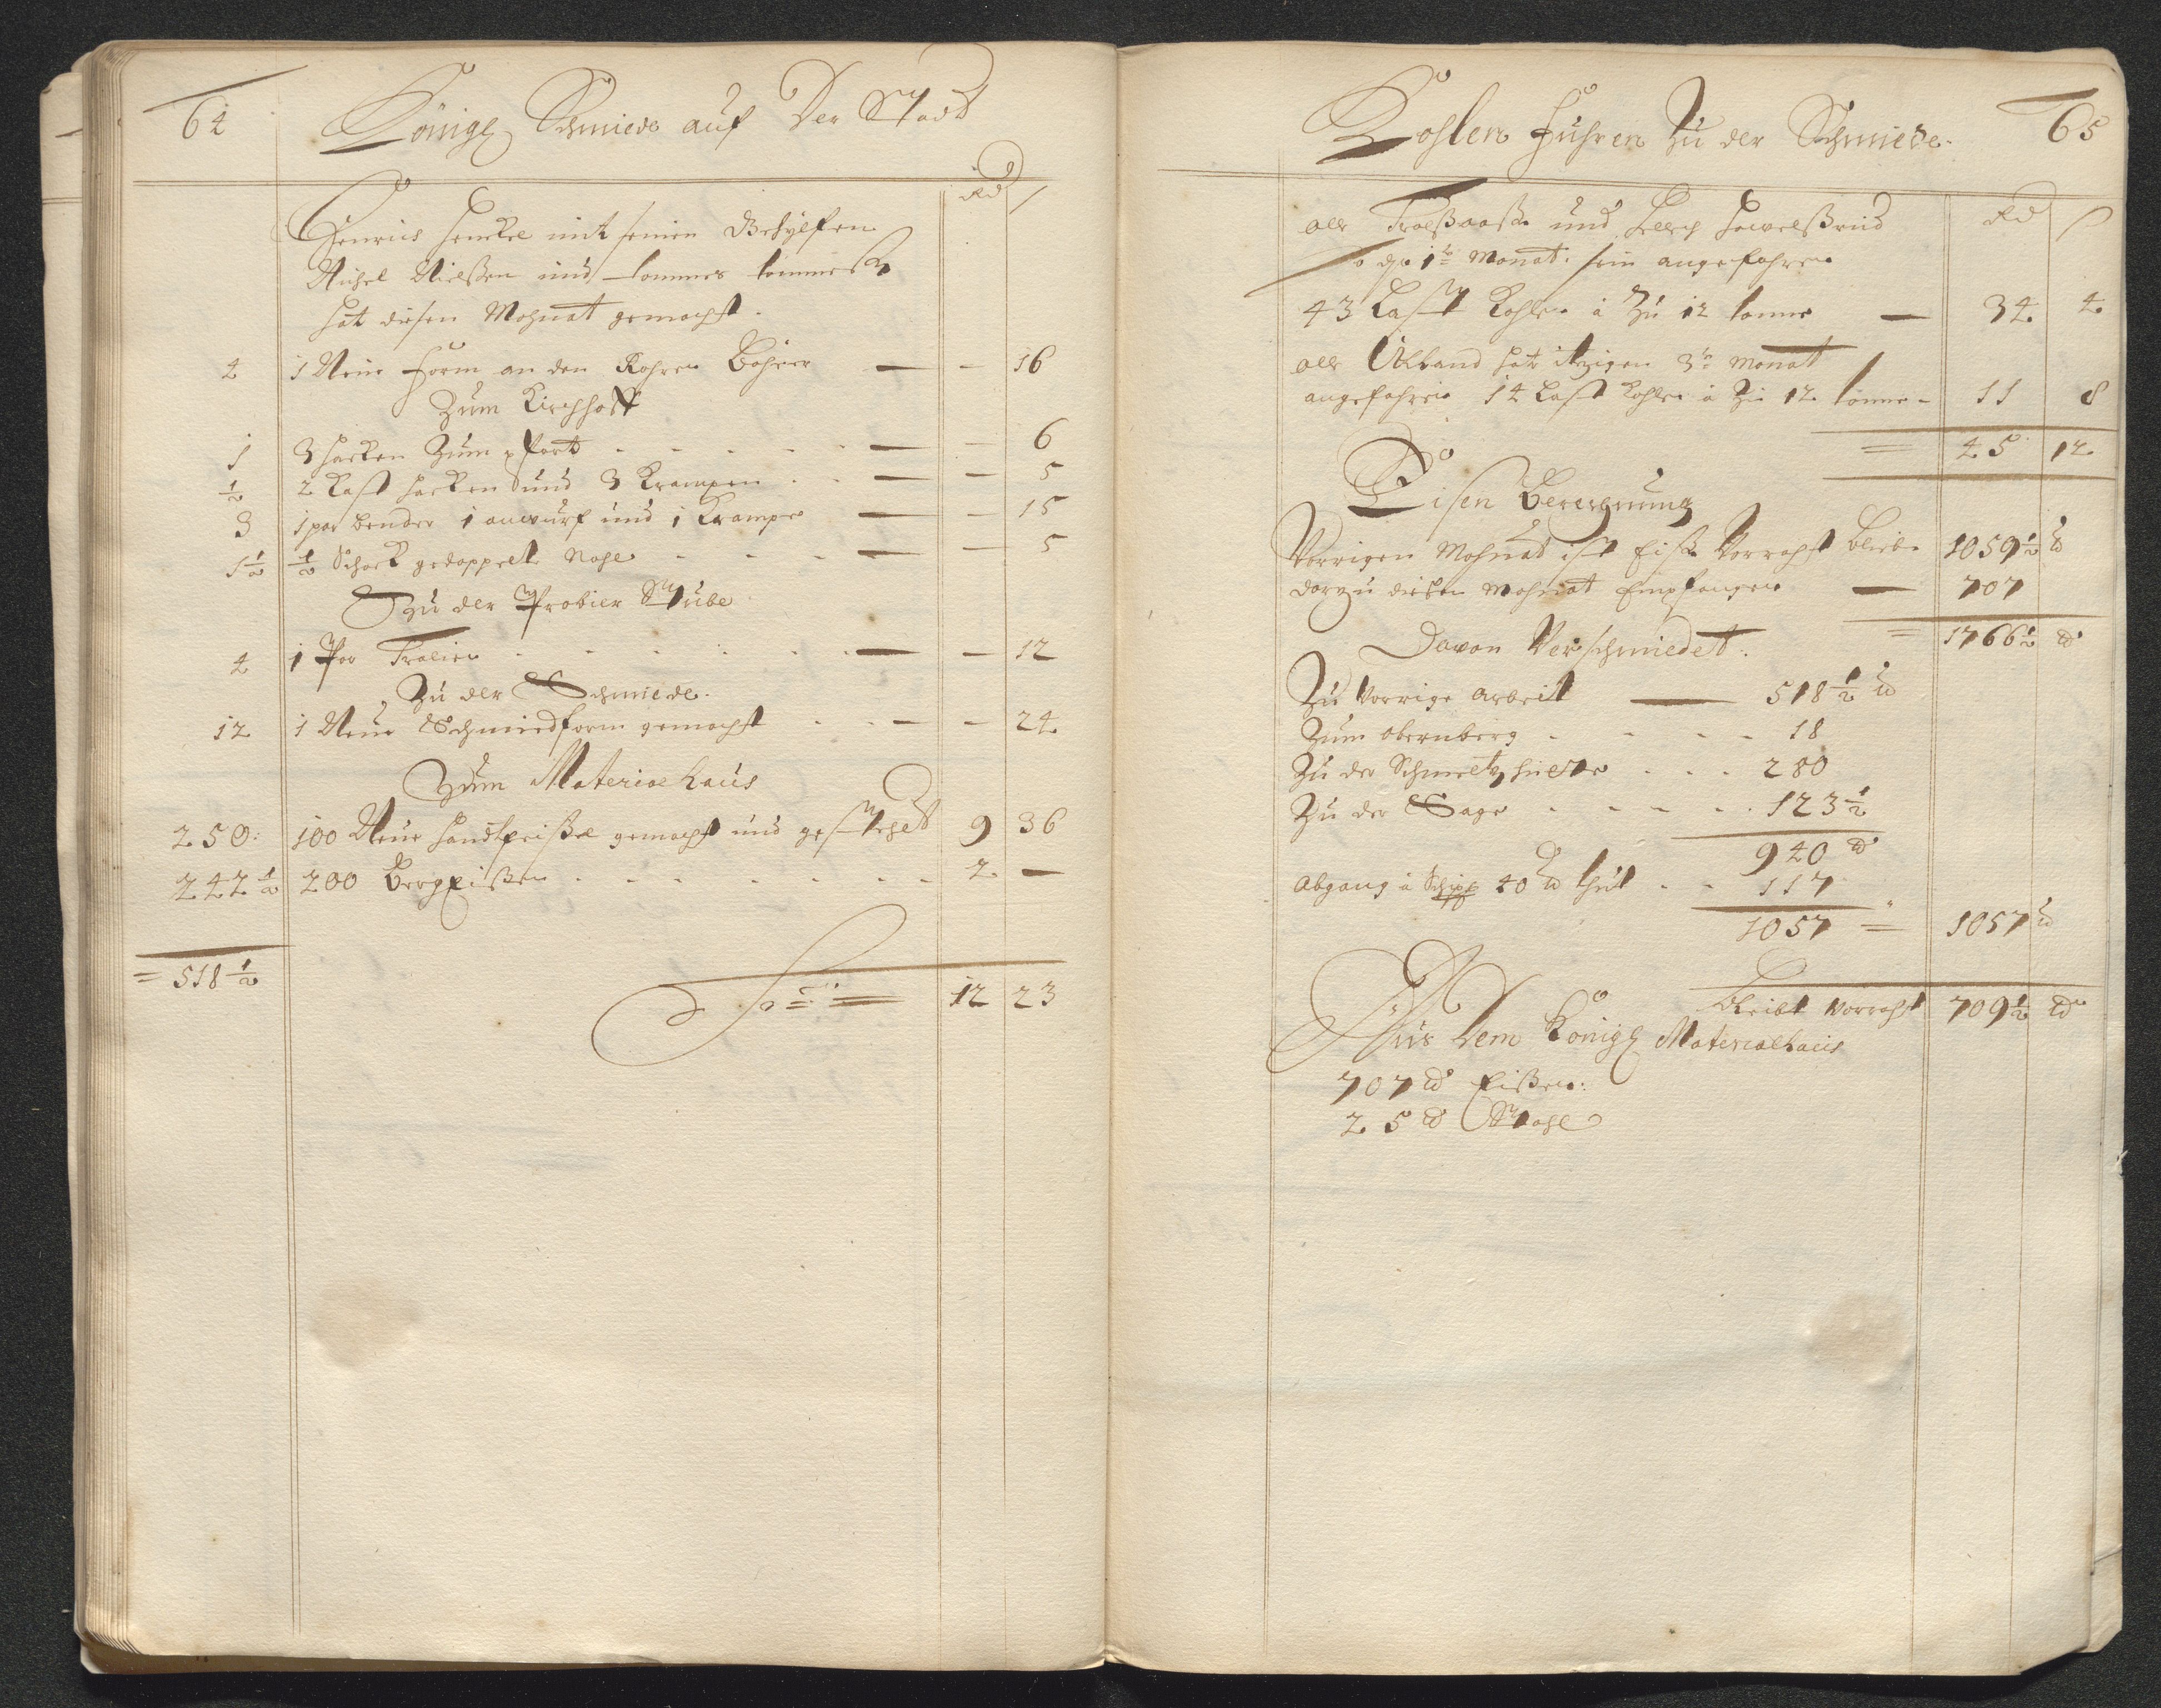 64
Königl Schmiede auf Der Stadt
Rd ß
Henrich Henckel mit seinen Gehylfen
Michel Nielßen und
hat diesen Mohnat gemacht.
4 1 Neue Form an den Rohren Bohrer — – 16
Zum Kirchhoff
1 3 Hacken Zum pfort - - - - — – 6
½ 2 Last Hacken und 3 Krampen . . — – 5
3 1 par bender 1 anwurf und 1 Krampe — – 15
1½ ½ Schock gedoppelte Nagel - - - — – 5
Zu der Probier Stube
4 1 Par Tralien - - - - - — – 12
Zu der Schmiede.
12 1 Neue Schmiedform gemacht - - – – 24
Zum Material haus
250: 100 Neue Handtfeißel gemacht und gestehelt 9 36
242½ 200 Bergeißen - - - - - - - 2 —
= 518½
Sa = 12 23
65
Kohlen Fuhren Zu der Schmiede.
Rd ß
1te Monat. sein angefahren
43 Last Kohlen à Zu 12 tonne — 34. 4.
hat itzigen 3te Monat
angefahren 14 Last Kohlen à Zu 12 tonne - 11 8
= 45 12
Eisen Berechnung
Vorrigen Mohnat ist Eißen Vorraht blieben 1059½ ℔
darzu dießen Mohnat Empfangen — 707
= 1766½ ℔
Davon Verschmiedet.
Zu Vorrige arbeit — 518½ ℔
Zum obernberg - - - - 18
Zu der Schmeltzhütte . . . 280
Zu der Sage - - - - - 123½
940 ℔
Abgang à Schipf 40 ℔ thut . - 117
1057 = 1057 ℔
Bleibt Vorraht 709½ ℔
Aus Dem Königl Materialhaus
707 ℔ Eißen:
25 ℔ Stahl